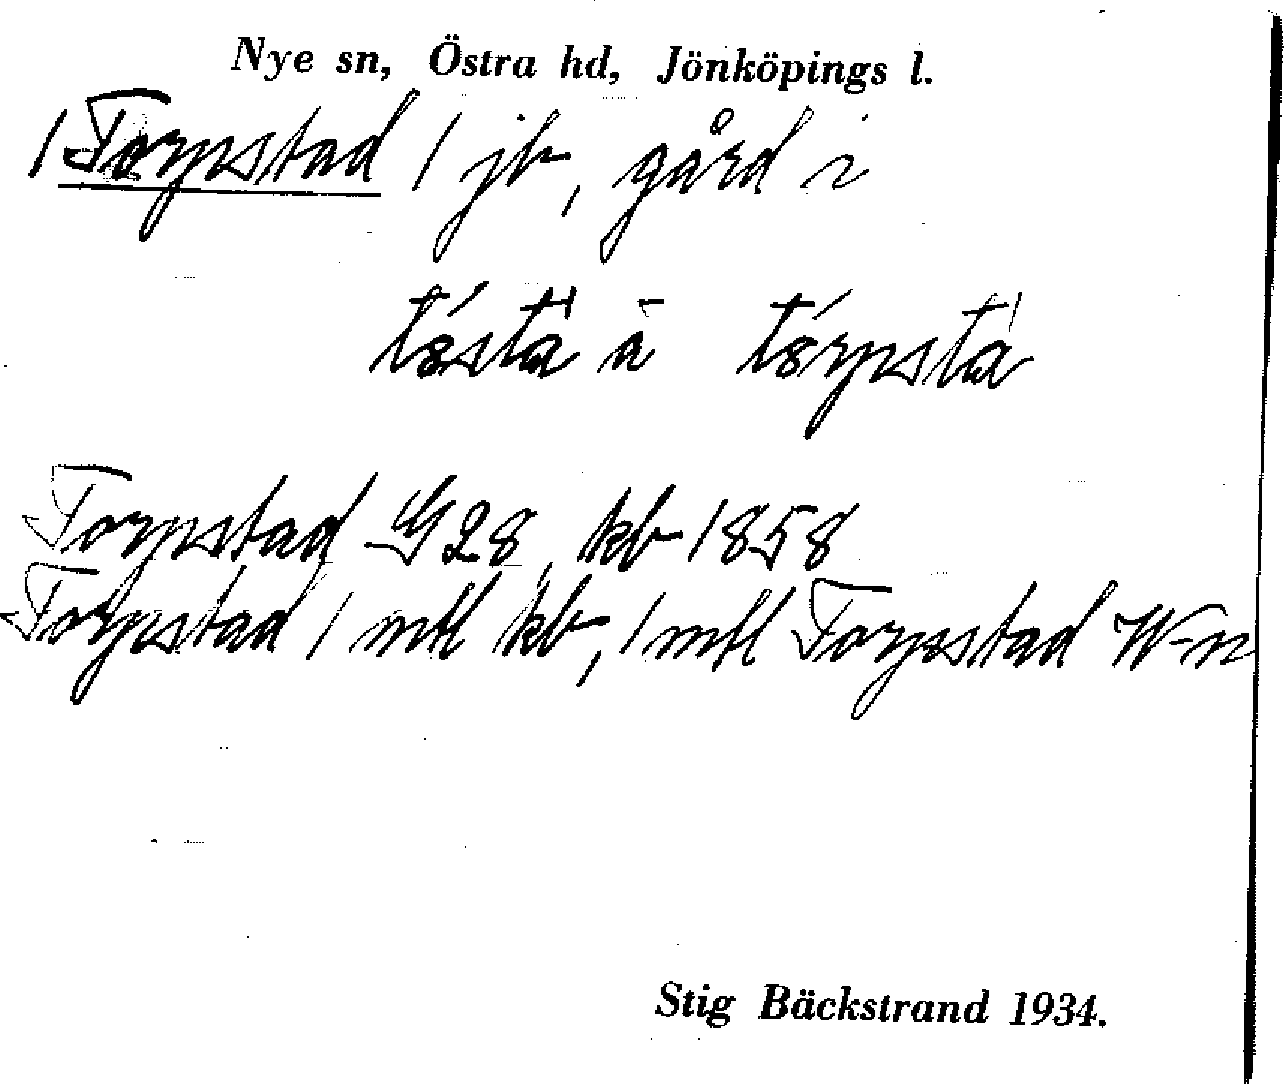 Nye sn, Östra hd, Jönköpings l.
1 Torpstad 1 jb, gård i
tórpstad G 28, kb 1858
Torpstad 1 mtl kb, 1 mtl Torpstad W-n
Stig Bäckstrand 1934.